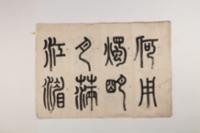 何用
燭明
月滿
江湄